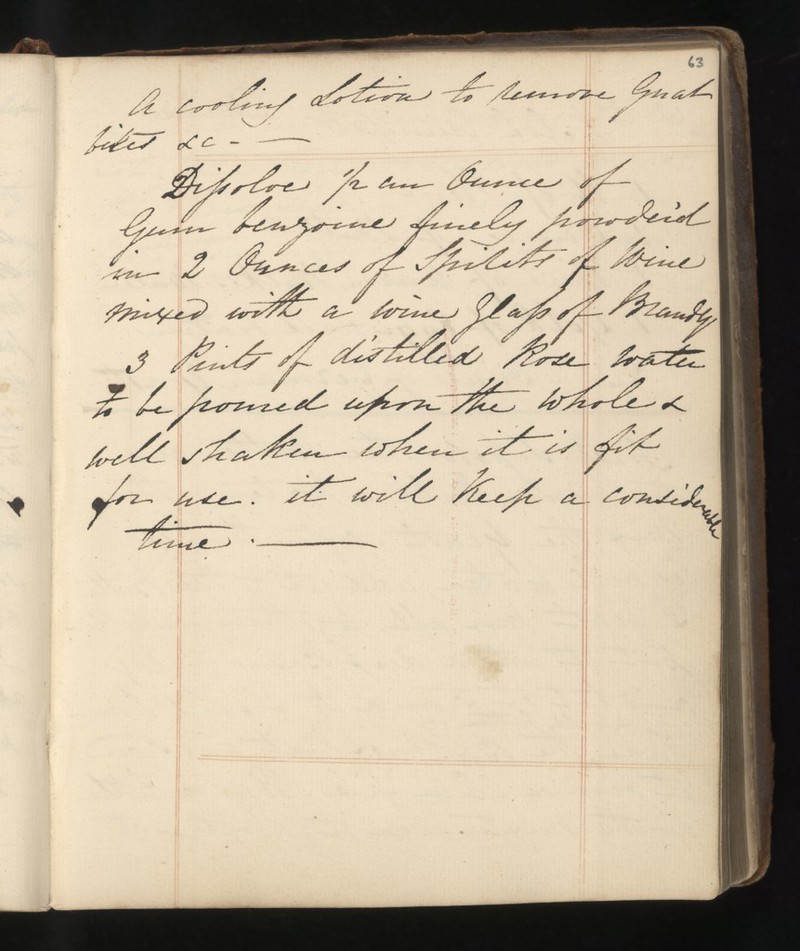 63
A cooling Lotion to remove Gnat
bites &c -
Dissolve 1/2 an Ounce of
Gum benzoine finely powder'd
in 2 Ounces of Spirits of Wine
mixed with a wine Glass of Brandy
3 Pints of distilled Rose water
to be poured upon the whole &
well shaken when it is fit
for use. it will Keep a considerable
time.